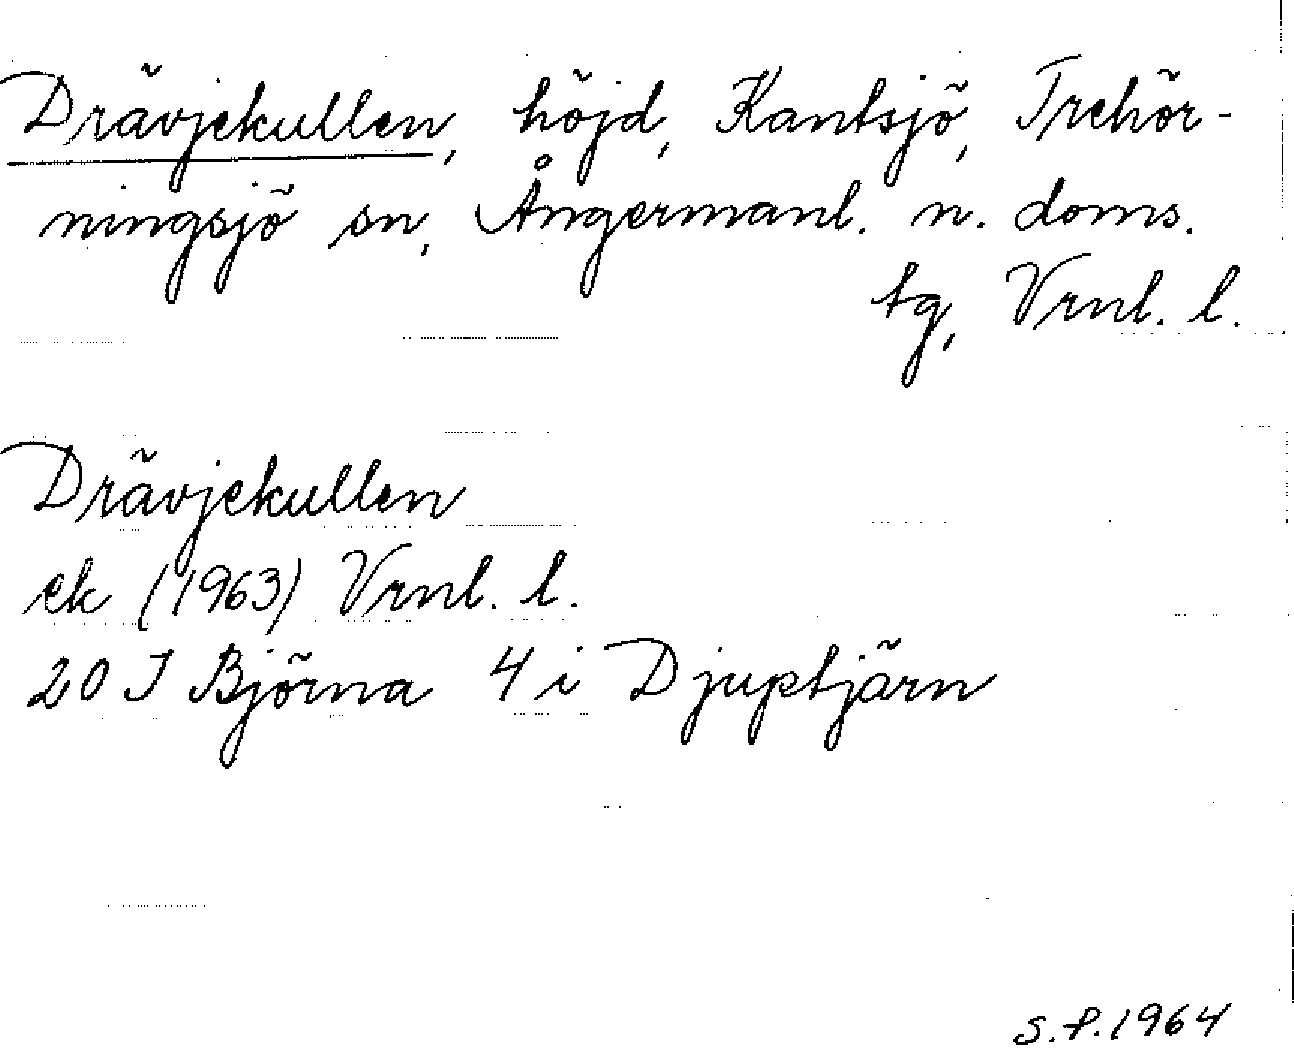 Drävjekullen, höjd, Kantsjö, Trehör-
ningsjö sn, Ångermanl. n. doms.
tg, Vrnl. l.
Drävjekullen
ek (1963) Vrnl. l.
20 J Björna 4 i Djuptjärn
S.P. 1964